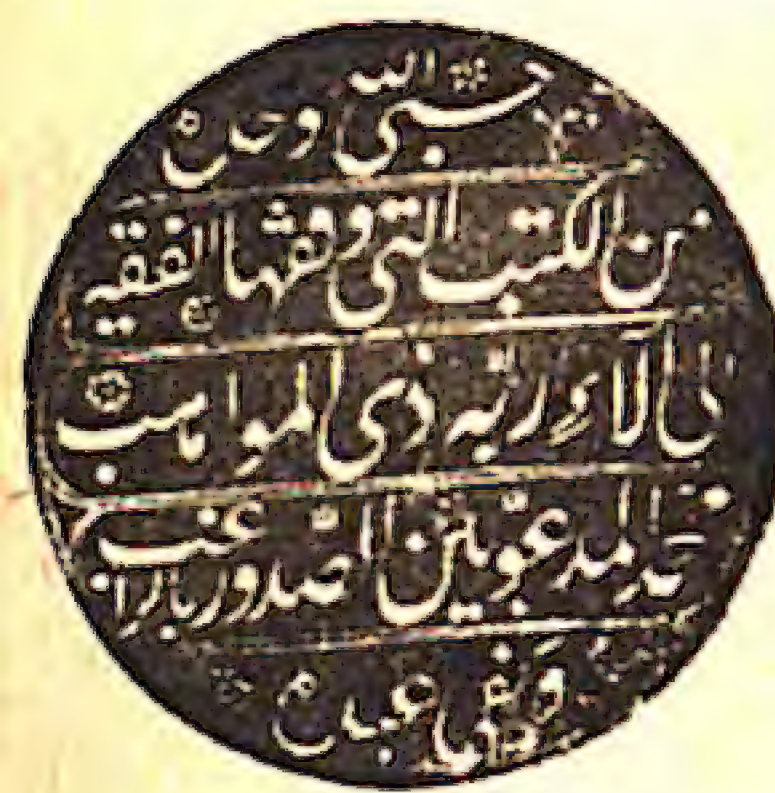 حسبي الله وحده
من الكتب التي وقفها الفقير
الى آلاء ربه ذي المواهب
محمد المدعو بين الصدور بالراغب
وفق